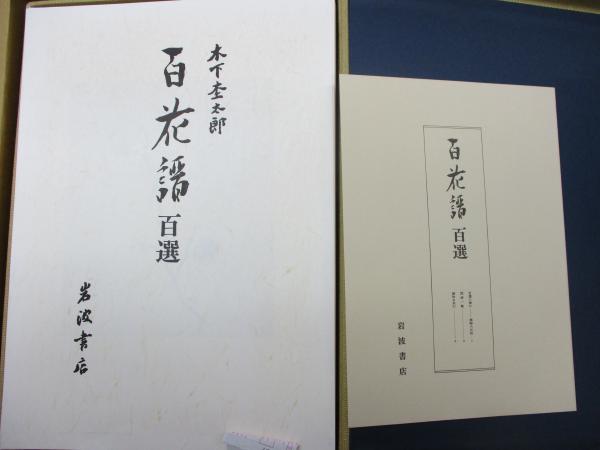 木下杢太郎
百花譜
百選
岩波書店
百花譜
百選
岩波書店